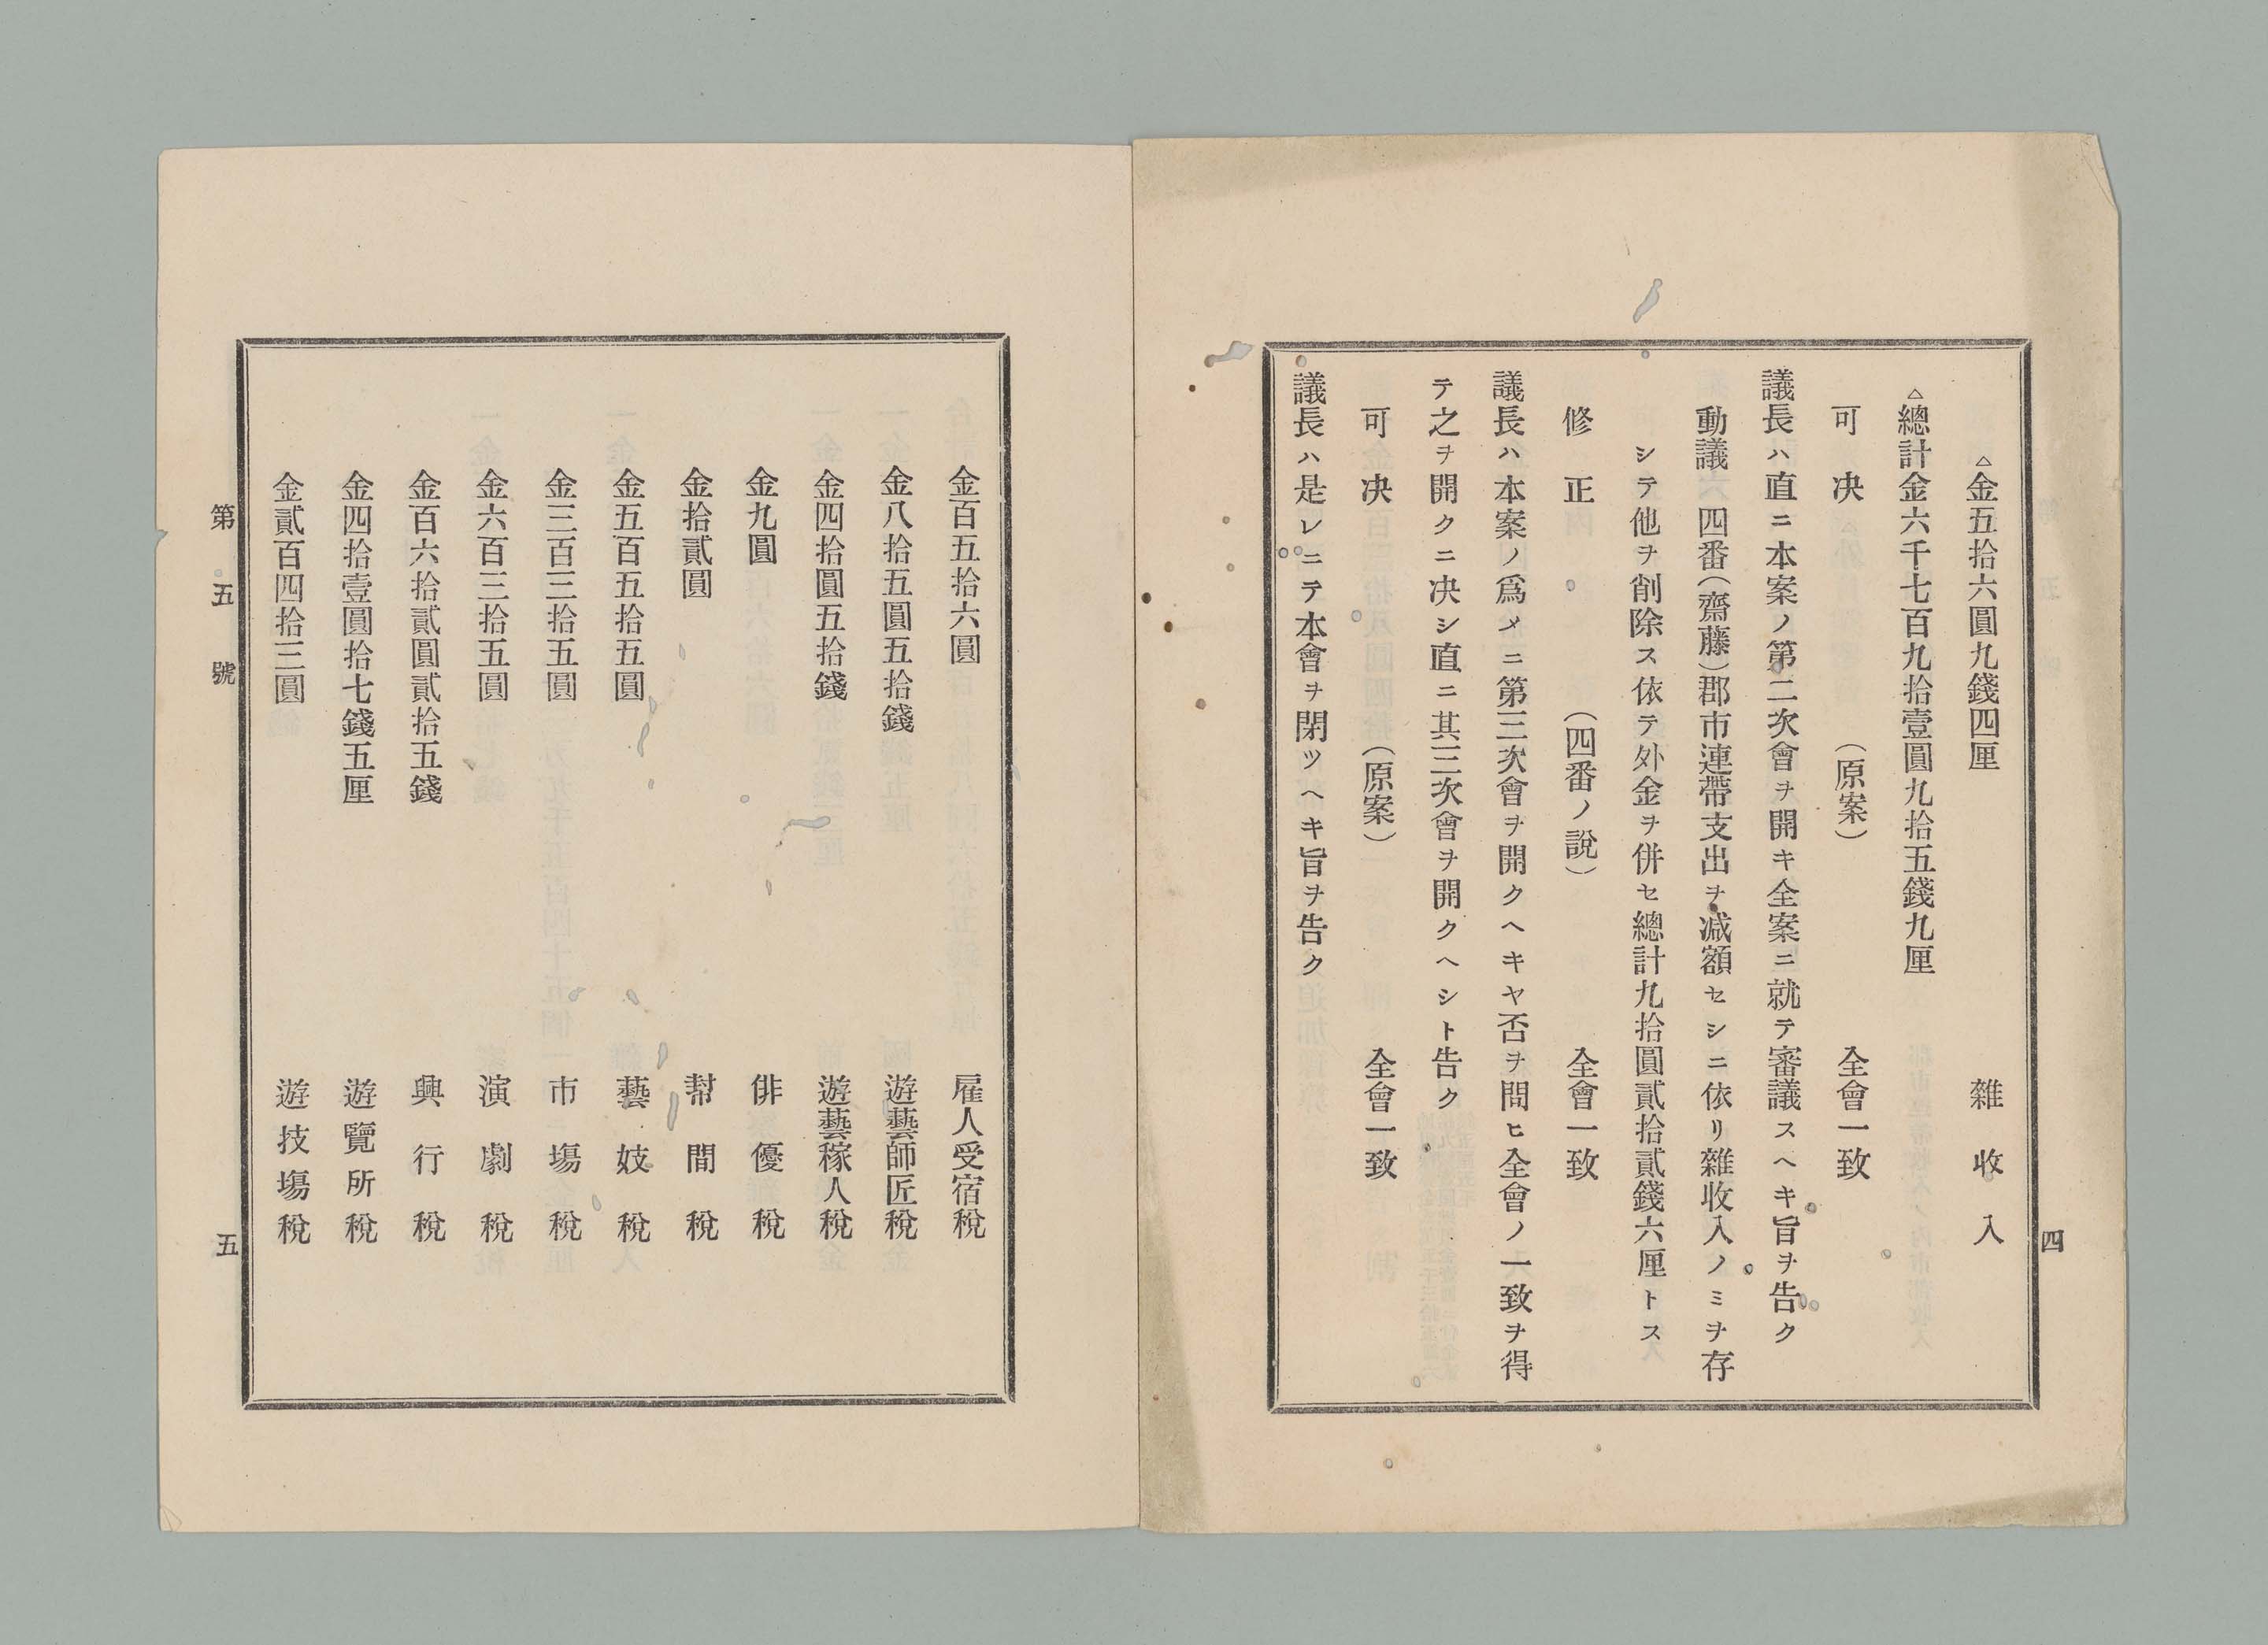 △金五拾六圓九錢四厘 雜收入
△總計金六千七百九拾壹圓九拾五錢九厘
可決 (原案) 全會一致
議長ハ直ニ本案ノ第二次會ヲ開キ全案ニ就テ審議スヘキ旨ヲ告ク
動議 四番(齋藤)郡市連帶支出ヲ減額セシニ依リ雜收入ノミヲ存
シテ他ヲ削除ス依テ外金ヲ併セ總計九拾圓貳拾貳錢六厘トス
修正 (四番ノ說) 全會一致
議長ハ本案ノ爲メニ第三次會ヲ開クヘキヤ否ヲ問ヒ全會ノ一致ヲ得
テ之ヲ開クニ决シ直ニ其三次會ヲ開クヘシト告ク
可決 (原案) 全會一致
議長ハ是レニテ本會ヲ閉ツヘキ旨ヲ告ク
四
金百五拾六圓 雇人受宿稅
金八拾五圓五拾錢 遊藝師匠稅
金四拾圓五拾錢 遊藝稼人稅
金九圓 俳優稅
金拾貳圓 幇間稅
金五百五拾五圓 藝妓稅
金三百三拾五圓 市塲稅
金六百三拾五圓 演劇稅
金百六拾貳圓貳拾五錢 興行稅
金四拾壹圓拾七錢五厘 遊覽所稅
金貳百四拾三圓 遊技塲稅
第五號 五